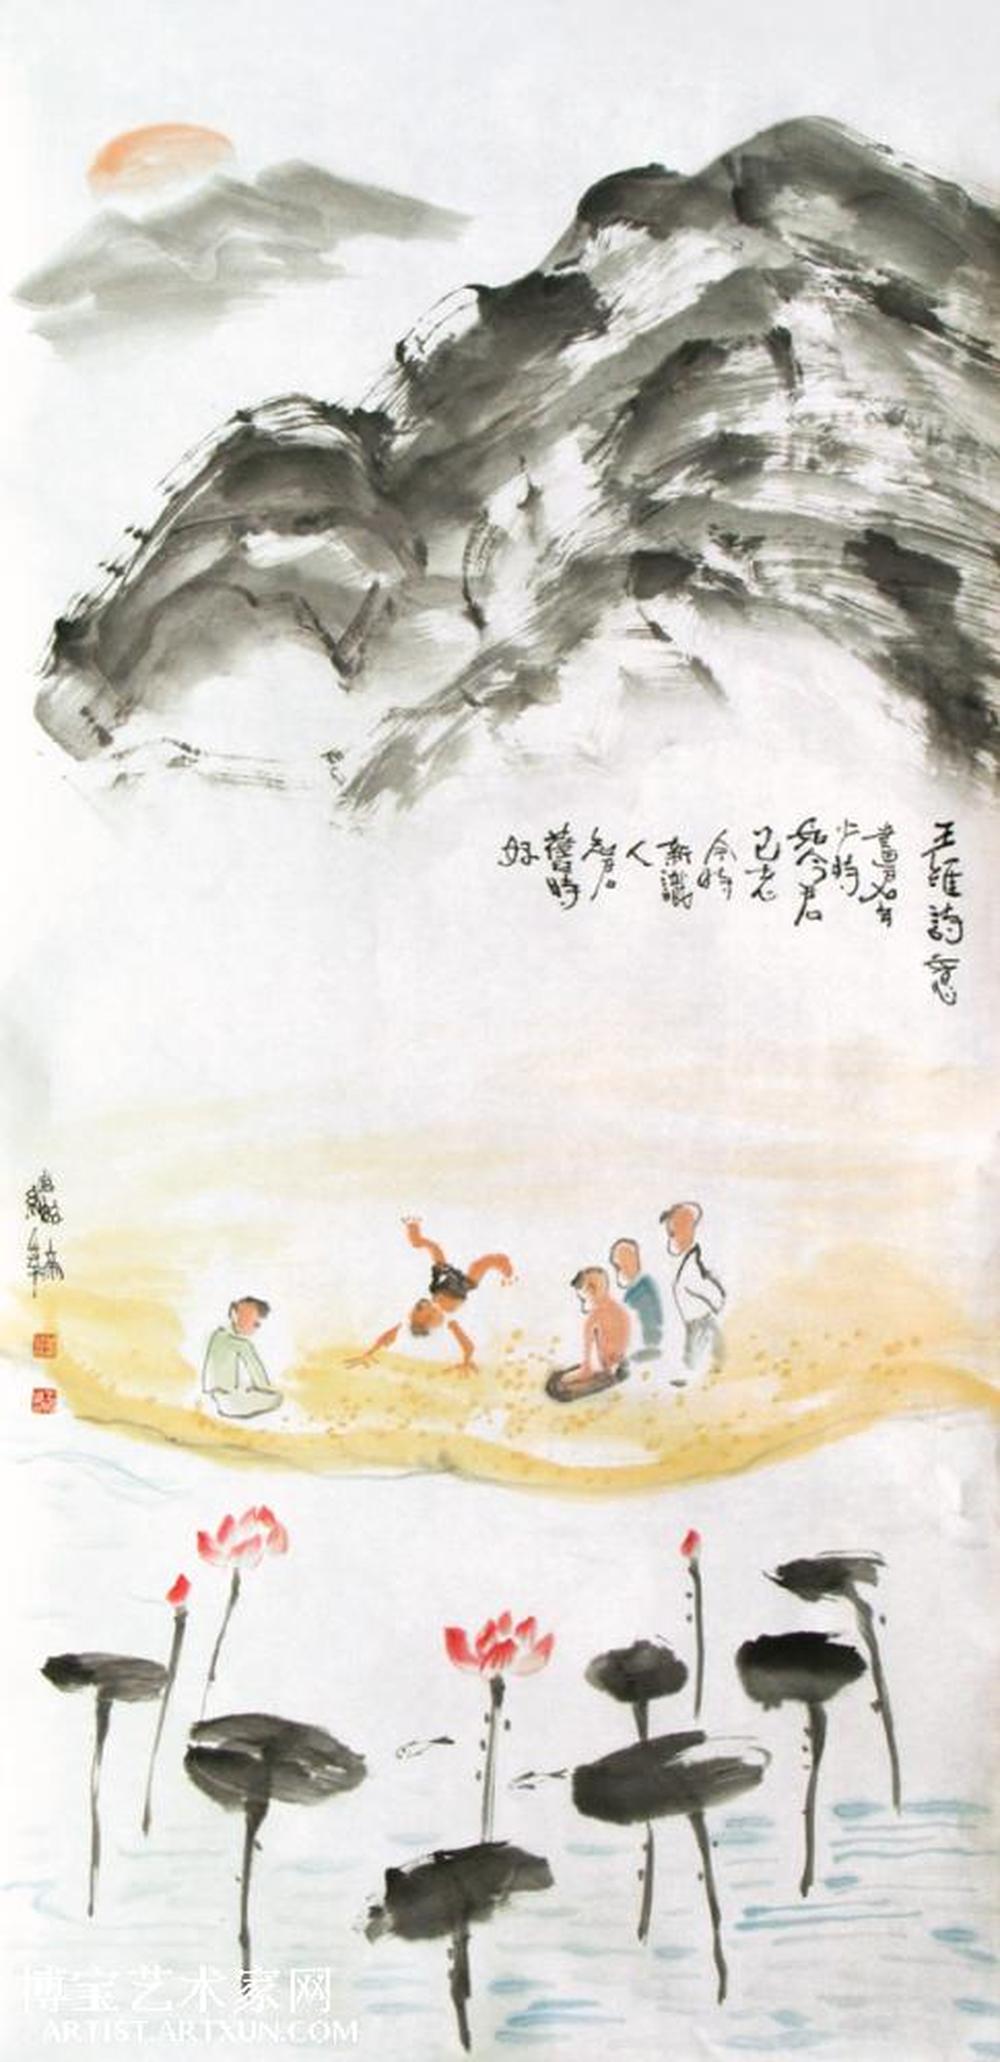 王維詩意
畫君年
少時
如今君
已老
今時
新識
人
知君
舊時
好
博宝艺术家网
ARTIST.ARTXUN.COM